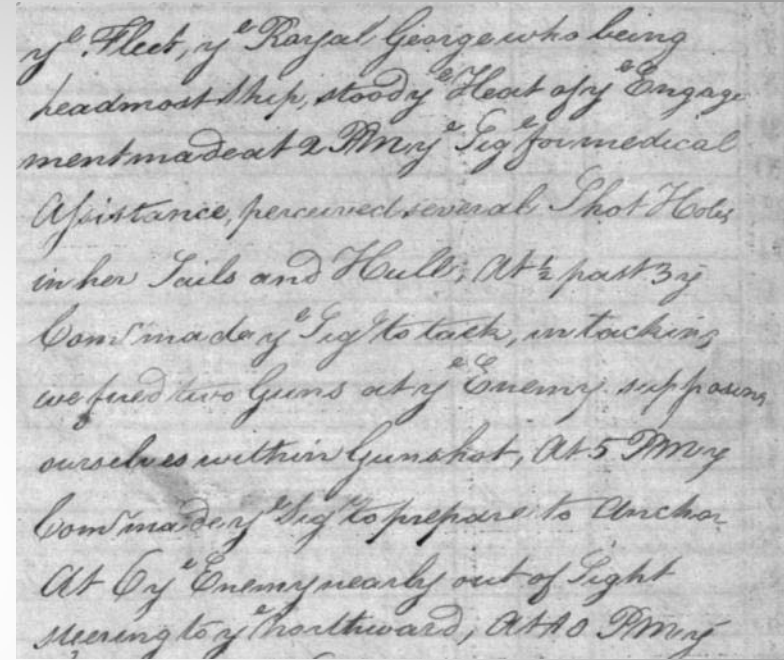 yᵉ Fleet, yᵉ Royal George who being
headmost Ship, stood yᵉ Heat of yᵉ Engage
ment made at 2 PM yᵉ Sigˡ for medical
Assistance, perceived several Shot Holes
in her Sails and Hull, At ½ past 3 yᵉ
Comʳ made yᵉ Sigˡ to tack, in tacking
we fired two Guns at yᵉ Enemy supposing
ourselves within Gunshot, At 5 PM yᵉ
Comʳ made yᵉ Sigˡ to prepare to Anchor
At 6 yᵉ Enemy nearly out of Sight
steering to yᵉ northward, At 10 PM yᵉ